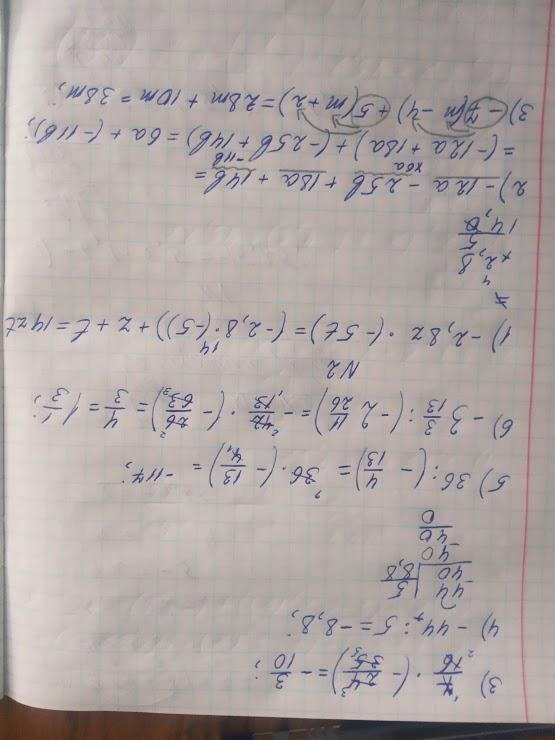 3) 7/16 · (- 24/35) = - 3/10 ;
4) - 44 : 5 = - 8,8 ;
44 | 5
40 | 8,8
- 40
40
0
5) 36 : (- 4/13) = 36 · (- 13/4) = - 117 ;
6) - 3 3/13 : (- 2 11/26) = - 42/13 · (- 26/63) = 4/3 = 1 1/3 ;
N2
1) - 2,8z · (- 5t) = (- 2,8 · (- 5)) + z + t = 14zt
14
4
× 2,8
5
14,0
2) - 12a - 25b + 18a + 14b =
+6a - 11b
= (- 12a + 18a) + (- 25b + 14b) = 6a + (- 11b) ;
3) - 7(m - 4) + 5(m + 2) = 28m + 10m = 38m ;